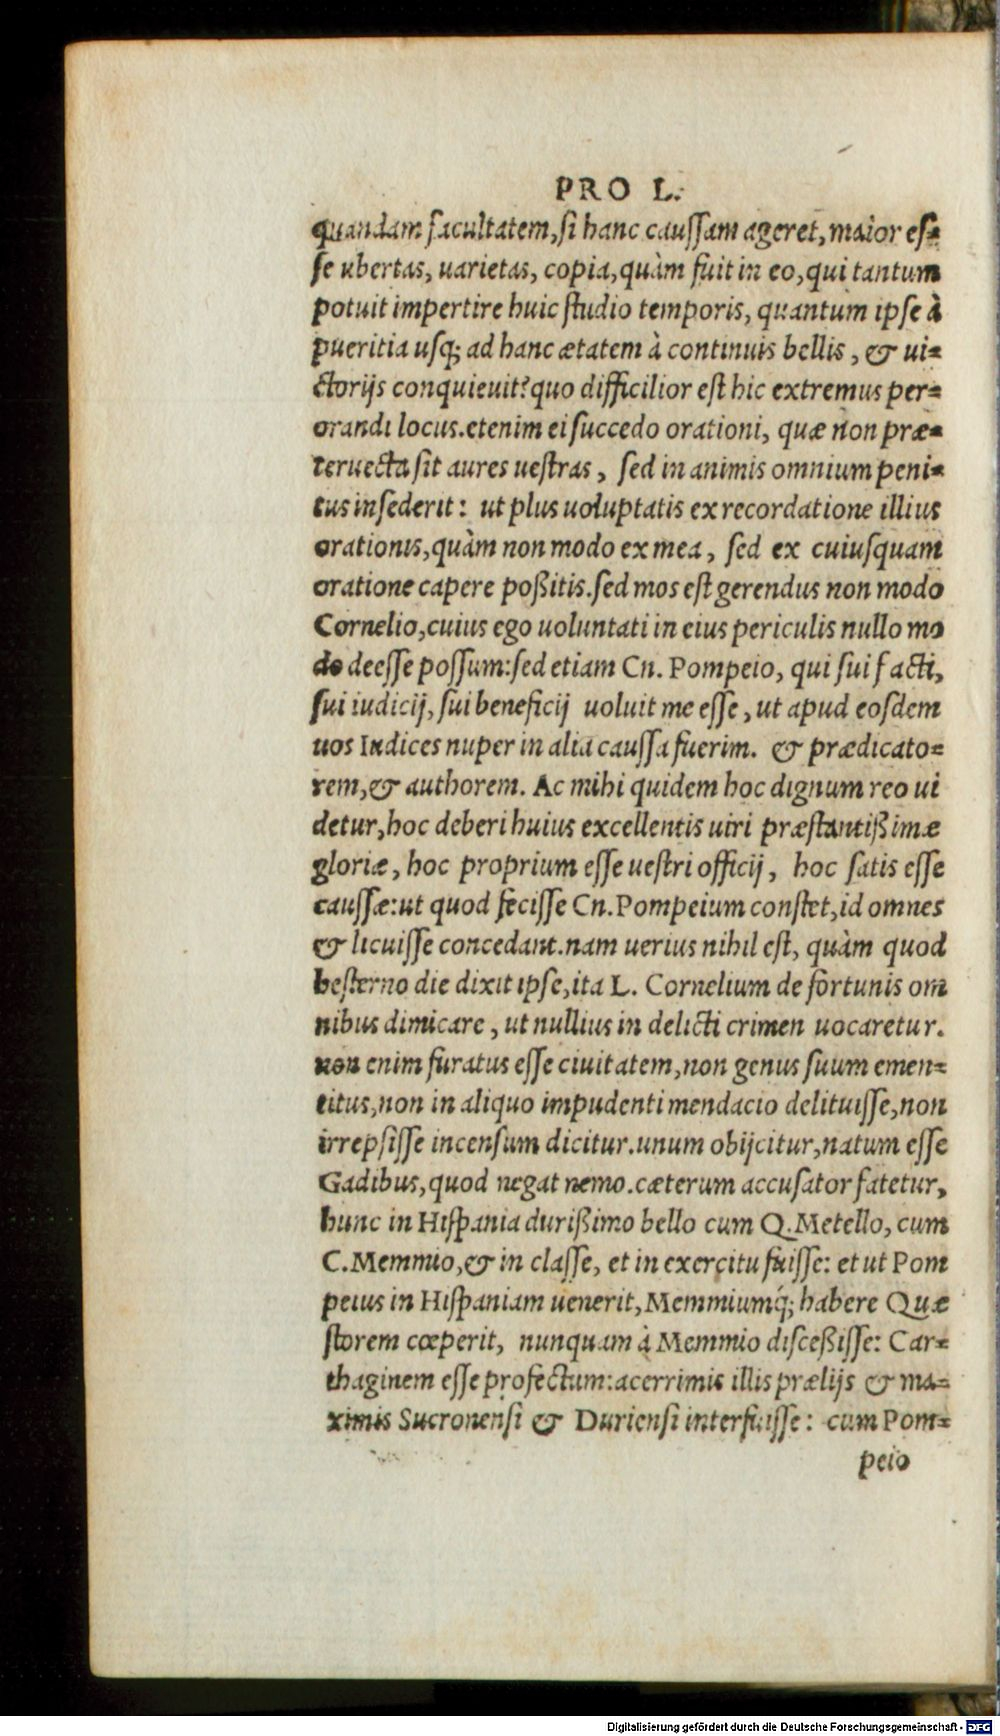 PRO L.
quandam facultatem,si hanc caussam ageret, maior es-
se ubertas, uarietas, copia, quàm fuit in eo, qui tantum
potuit impertire huic studio temporis, quantum ipse à
pueritia usq; ad hanc ætatem à continuis bellis, & ui-
ctorijs conquieuit? quo difficilior est hic extremus per-
orandi locus. etenim ei succedo orationi, quæ non præ-
teruecta sit aures uestras, sed in animis omnium peni-
tus insederit: ut plus uoluptatis ex recordatione illius
orationis, quàm non modo ex mea, sed ex cuiusquam
oratione capere poßitis. sed mos est gerendus non modo
Cornelio, cuius ego uoluntati in eius periculis nullo mo
do deesse possum: sed etiam Cn. Pompeio, qui sui facti,
sui iudicij, sui beneficij uoluit me esse, ut apud eosdem
uos Iudices nuper in alia caussa fuerim. & prædicato-
rem, & authorem. Ac mihi quidem hoc dignum reo ui
detur, hoc deberi huius excellentis uiri præstantißimæ
gloriæ, hoc proprium esse uestri officij, hoc satis esse
caussæ: ut quod fecisse Cn. Pompeium constet, id omnes
& licuisse concedant. nam uerius nihil est, quàm quod
hesterno die dixit ipse, ita L. Cornelium de fortunis om
nibus dimicare, ut nullius in delicti crimen uocaretur.
non enim furatus esse ciuitatem, non genus suum emen-
titus, non in aliquo impudenti mendacio delituisse, non
irrepsisse in censum dicitur. unum obijcitur, natum esse
Gadibus, quod negat nemo. cæterum accusator fatetur,
hunc in Hispania durißimo bello cum Q. Metello, cum
C. Memmio, & in classe, et in exercitu fuisse: et ut Pom
peius in Hispaniam uenerit, Memmiumq́; habere Quæ
storem cœperit, nunquam à Memmio disceßisse: Car-
thaginem esse profectum: acerrimis illis prælijs & ma-
ximis Sucronensi & Duriensi interfuisse: cum Pom-
peio
Digitalisierung gefördert durch die Deutsche Forschungsgemeinschaft - DFG